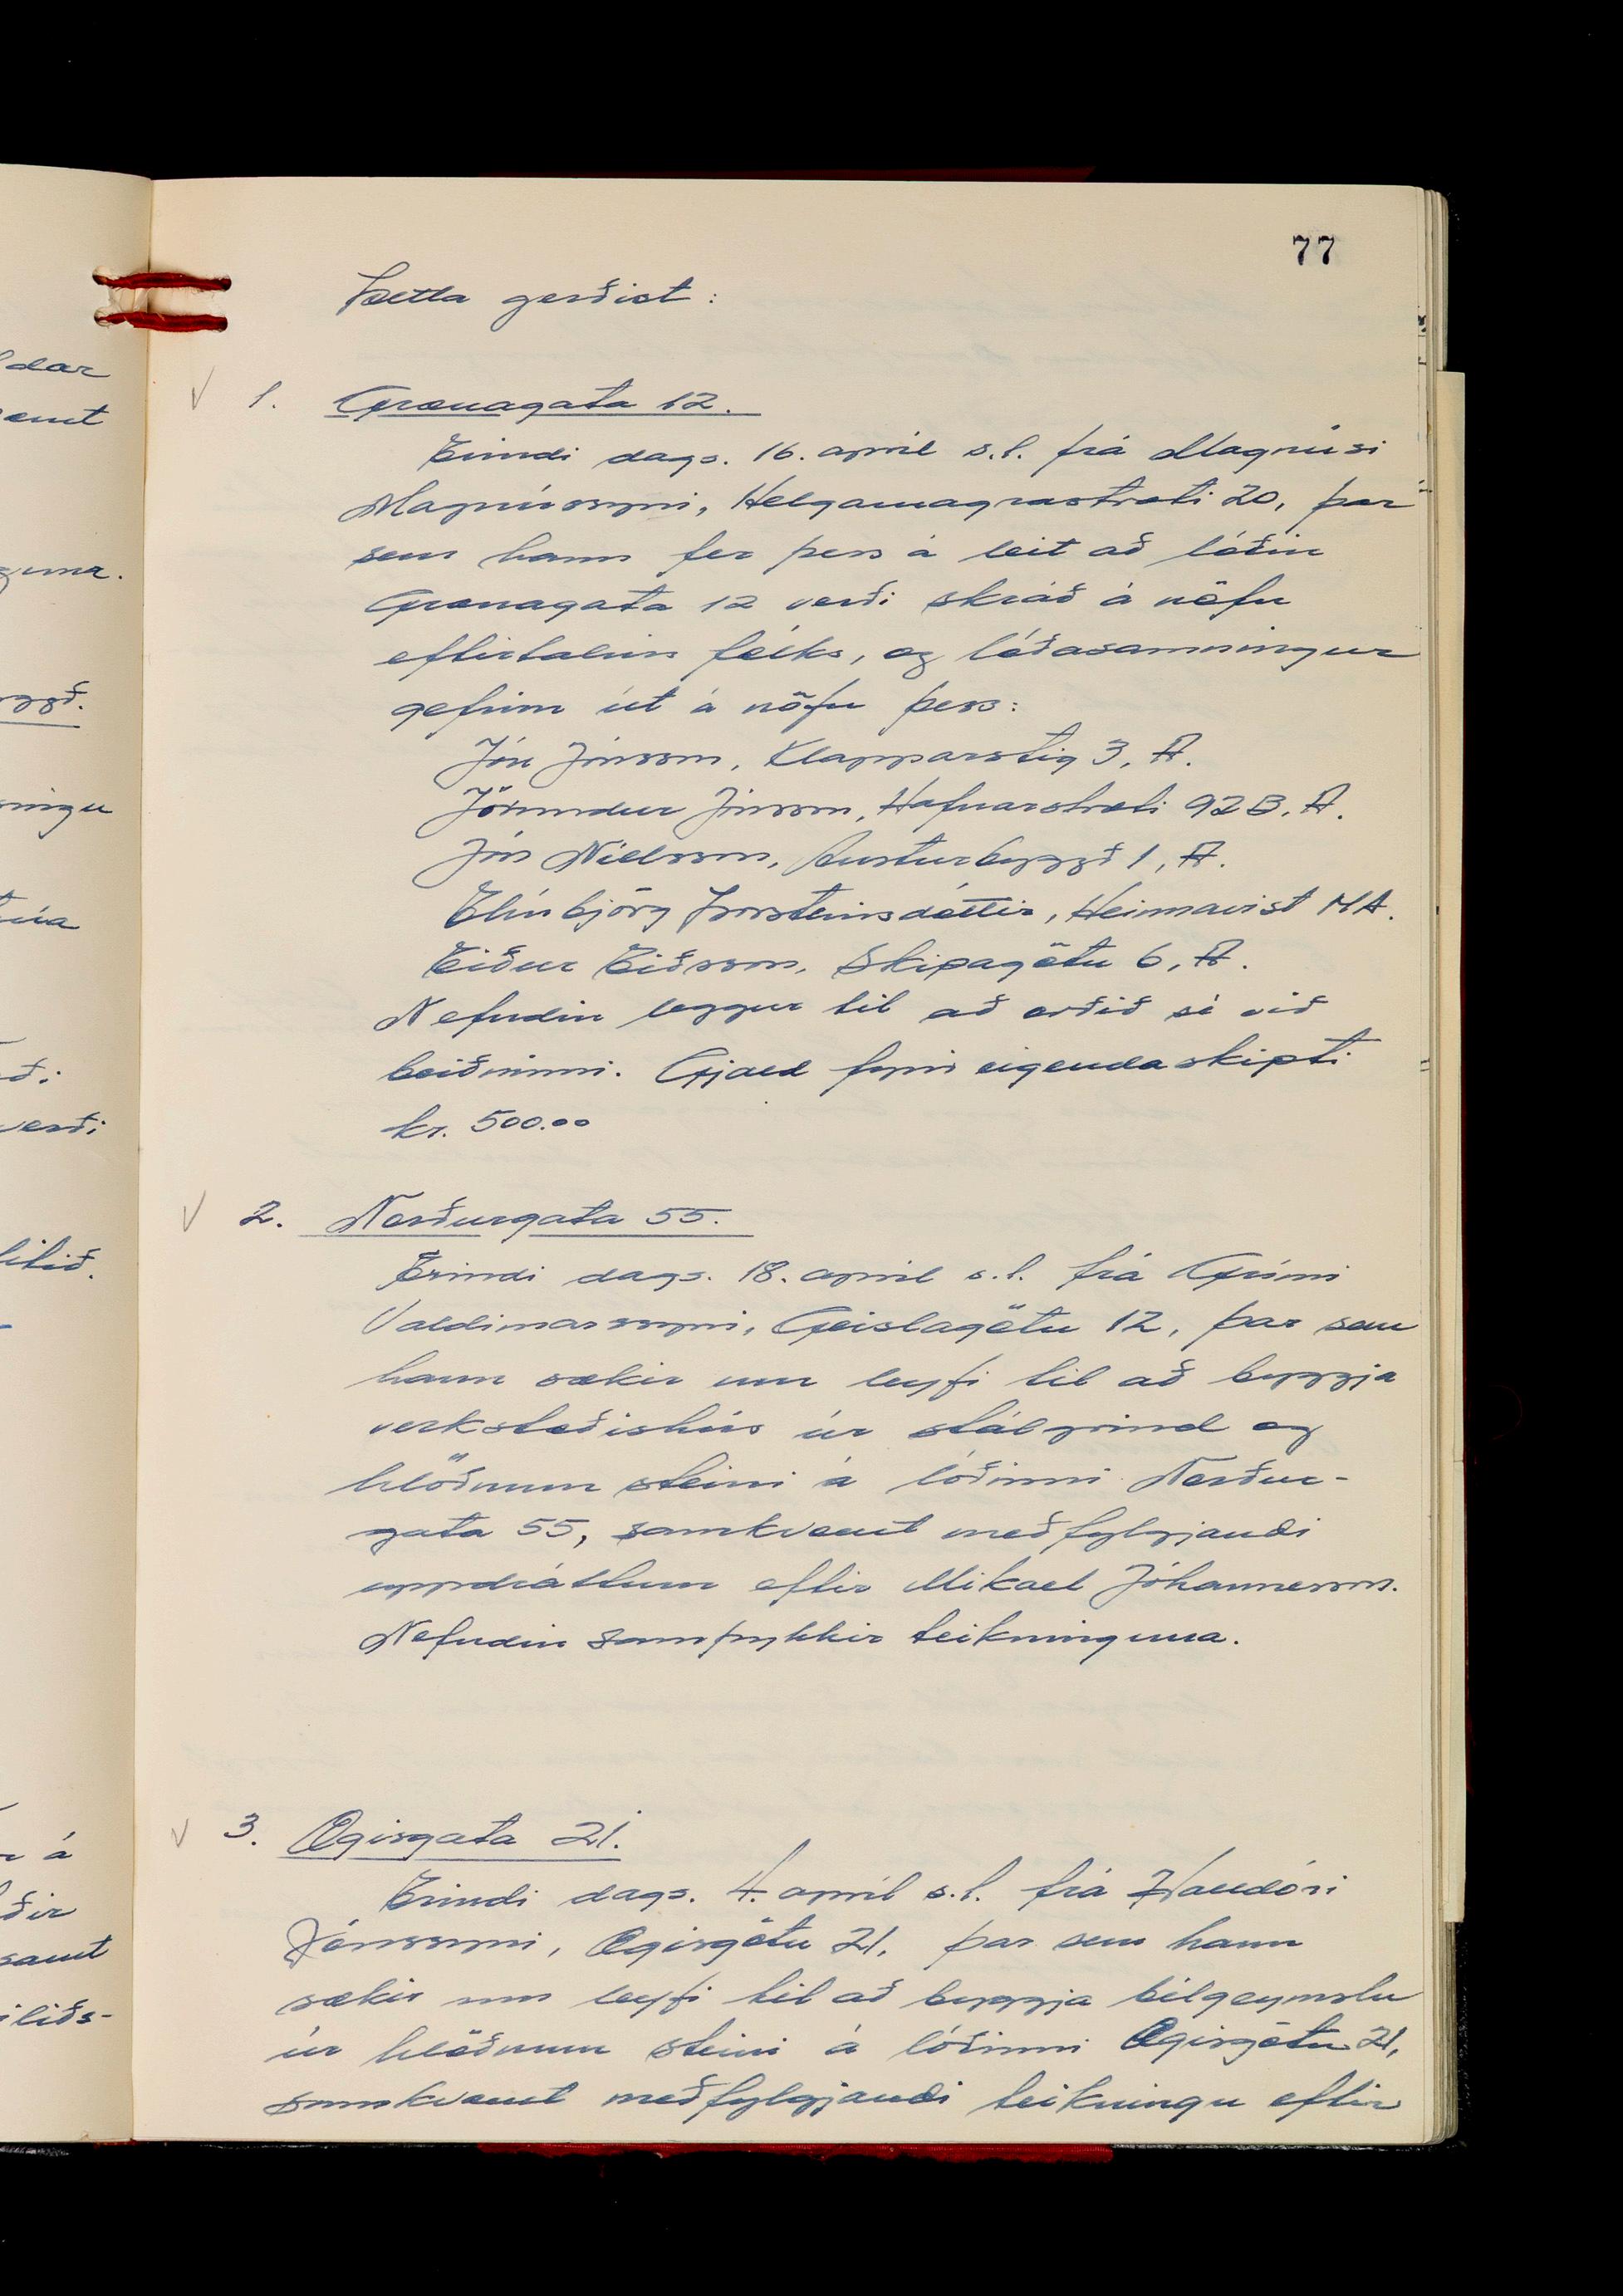 77
Þetta gerðist:
1. Grænagata 12.
Erindi dags. 16. apríl s.l. frá Magnúsi
Magnússyni, Helgamagrastræti 20, þar
sem hann fer þess á leit að lóðin
Grænagata 12 verði skráð á nöfn
eftirtalins fólks, og lóðasamningur
gefinn út á nöfn þess:
Jón Jónsson, Klapparstíg 3, A.
Jörundur Jónsson, Hafnarstræti 92B, A.
Jón Níelsson, Austurbyggð 1, A.
Elínbjörg Þorsteinsdóttir, Heimavist MA.
Eiður Eiðsson, Skipagötu 6, A.
Nefndin leggur til að orðið sé við
beiðninni. Gjald fyrir eigendaskipti
kr. 500.00
2. Norðurgata 55.
Erindi dags. 18. apríl s.l. frá Grími
Valdimarssyni, Geislagötu 12, þar sem
hann sækir um leyfi til að byggja
verkstæðishús úr stálgrind og
hlöðnum steini á lóðinni Norður-
gata 55, samkvæmt meðfylgjandi
uppdráttum eftir Mikael Jóhannesson.
Nefndin samþykkir teikninguna.
3. Ægisgata 21.
Erindi dags. 4. apríl s.l. frá Halldóri
Jónssyni, Ægisgötu 21, þar sem hann
sækir um leyfi til að byggja bílgeymslu
úr hlöðnum steini á lóðinni Ægisgötu 21,
samkvæmt meðfylgjandi teikningu eftir